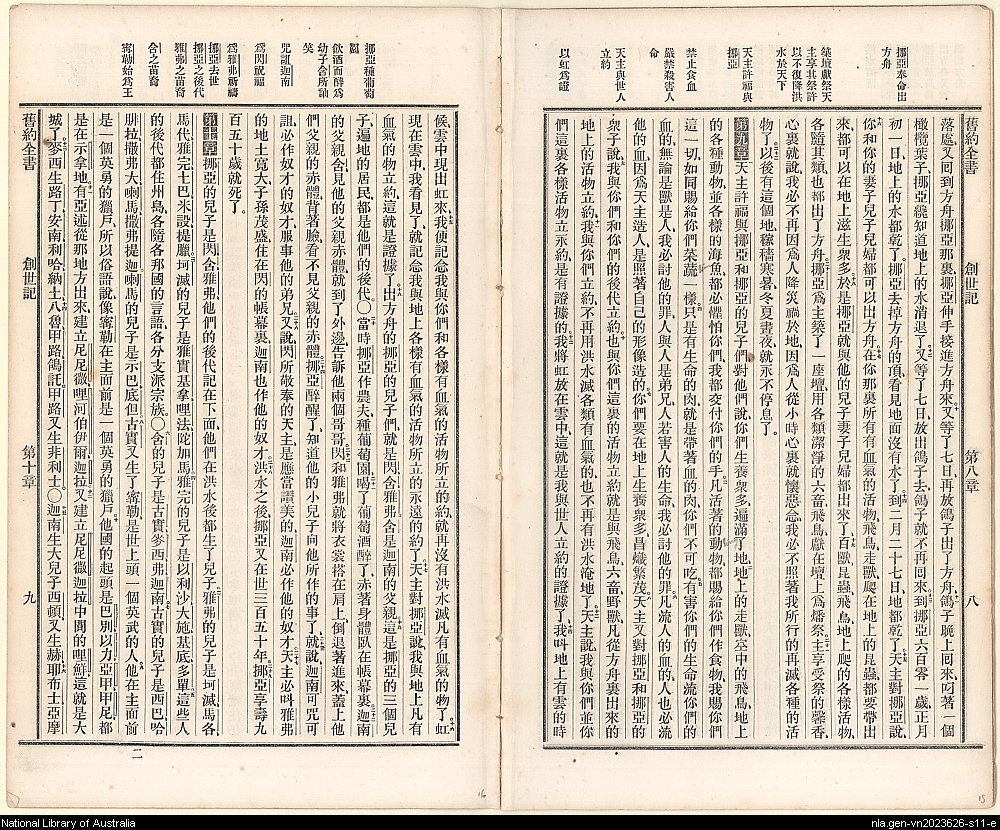 挪亞奉命出
方舟
築壇獻祭天
主享其祭許
以不復降洪
水於天下
天主許福與
挪亞
禁止食血
嚴禁殺害人
命
天主與世人
立約
以虹為證
舊約全書
創世記
第八章
八
落處又回到方舟挪亞那裏挪亞伸手接進方舟來又等了七日再放鴿子出了方舟鴿子晚上回來叼著一個
橄欖葉子挪亞纔知道地上的水消退了又等了七日放出鴿子去鴿子就不再回來到挪亞六百零一歲正月
初一日地上的水都乾了挪亞去掉方舟的頂看見地面沒有水了到二月二十七日地都乾了天主對挪亞說
你和你的妻子兒子兒婦都可以出方舟在你那裏所有有血氣的活物飛鳥走獸爬在地上的昆蟲都要帶出
來都可以在地上滋生衆多於是挪亞就與他的兒子妻子兒婦都出來了百獸昆蟲飛鳥地上爬的各樣活物
各隨其類也都出了方舟挪亞為主築了一座壇用各類潔淨的六畜飛鳥獻在壇上為燔祭主享受祭的馨香
心裏就說我必不再因為人降災禍於地因為人從小時心裏就懷惡念我必不照著我所行的再滅各種的活
物了以後有這個地稼穡寒暑冬夏晝夜就永不停息了
第九章天主許福與挪亞和挪亞的兒子們對他們說你們生養衆多遍滿了地地上的走獸空中的飛鳥地上
的各種動物並各樣的海魚都必懼怕你們我都交付你們的手凡活著的動物都賜給你們作食物我賜你們
這一切如同賜給你們菜蔬一樣只是有生命的肉就是帶著血的肉你們不可吃有害你們的生命流你們血
的無論是獸是人我必討他的罪人與人是弟兄人若害人的生命我必討他的罪凡流人的血的人也必流
他的血因為天主造人是照著自己的形像造的你們要在地上生養衆多昌熾繁茂天主又對挪亞和挪亞的
衆子說我與你們和你們的後代立約也與你們這裏的活物立約就是與飛鳥六畜野獸凡從方舟裏出來的
地上的活物立約我與你們立約不再用洪水滅各類有血氣的也不再有洪水淹地了天主說我與你們並你
們這裏各樣活物立永約是有證據的我將虹放在雲中這就是我與世人立約的證據了我叫地上有雲的時
挪亞種葡萄
園
飲酒而醉為
幼子含所訕
笑
咒詛迦南
為閃祝福
為雅弗祈禱
挪亞去世
挪亞之後代
雅弗之苗裔
含之苗裔
寧勒始為王
舊約全書
創世記
第十章
九
候雲中現出虹來我便記念我與你們和各樣有血氣的活物所立的約就再沒有洪水滅凡有血氣的物了虹
現在雲中我看見了就記念我與地上各樣有血氣的活物所立的永遠的約了天主對挪亞說我與地上凡有
血氣的物立約這就是證據了出方舟的挪亞的兒子們就是閃含雅弗含是迦南的父親這是挪亞的三個兒
子遍地的居民都是他們的後代〇當時挪亞作農夫種葡萄園喝了葡萄酒醉了赤著身體臥在帳幕裏迦南
的父親含見他的父親赤體就到了外邊告訴他兩個哥哥閃和雅弗就將衣裳搭在肩上倒退著進來蓋上他
們父親的赤體背著臉看不見父親的赤體挪亞醉醒了知道他的小兒子向他所作的事了就說迦南可咒可
詛必作奴才的奴才服事他的弟兄又說閃所敬奉的天主是應當讚美的迦南必作他的奴才天主必叫雅弗
的地土寬大子孫茂盛住在閃的帳幕裏迦南也作他的奴才洪水之後挪亞又在世三百五十年挪亞享壽九
百五十歲就死了
第十章挪亞的兒子是閃含雅弗他們的後代記在下面他們在洪水後都生了兒子雅弗的兒子是坷滅馬各
馬代雅完土巴米設提臘坷滅的兒子是雅實基拿哩法陀加馬雅完的兒子是以利沙大施基底多單這些人
的後代都在住州島各隨各邦國的言語各分支派宗族〇含的兒子是古實麥西弗迦南古實的兒子是西巴哈
腓拉撒弗大喇馬撒弗提迦喇馬的兒子是示巴底但古實又生了寧勒是世上頭一個英武的人他在主面前
是一個英勇的獵戶所以俗語說像寧勒在主面前是一個英勇的獵戶他國的起頭是巴別以力亞甲甲尼都
是在示拿地有亞述從那地方出來建立尼尼微哩河伯伊爾迦拉又建立尼尼微迦拉中間的哩鮮這就是大
城了麥西生路丁安南利哈納土八魯甲路鴿託甲路又生非利士〇迦南生大兒子西頓又生赫耶布士亞摩
二
16
15
National Library of Australia
nla.gen-vn2023626-s11-e